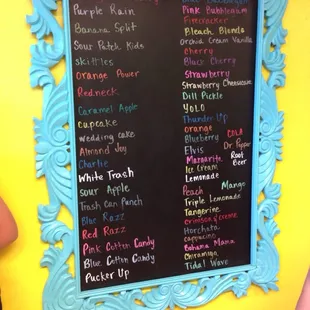 Purple Rain
Banana Split
Sour Patch Kids
skittles
Orange Power
Redneck
Caramel Apple
cupcake
wedding cake
Almond Joy
Charlie
White Trash
sour Apple
Trash can Punch
Blue Razz
Red Razz
Pink Cotton Candy
Blue Cotton Candy
Pucker Up
Pink Bubblegum
Firecracker
Bleach Blonde
Orchid Cream Vanilla
Cherry
Black Cherry
Strawberry
Strawberry Cheesecake
Dill Pickle
YOLO
Thunder Up
orange
Blueberry
COLA
Elvis
Dr. Pepper
Margarita
Root Beer
Ice Cream
Lemonade
Peach
Mango
Triple Lemonade
Tangerine
crimson & creme
Horchata
cappucino
Bahama Mama
Chiramisu
Tidal Wave